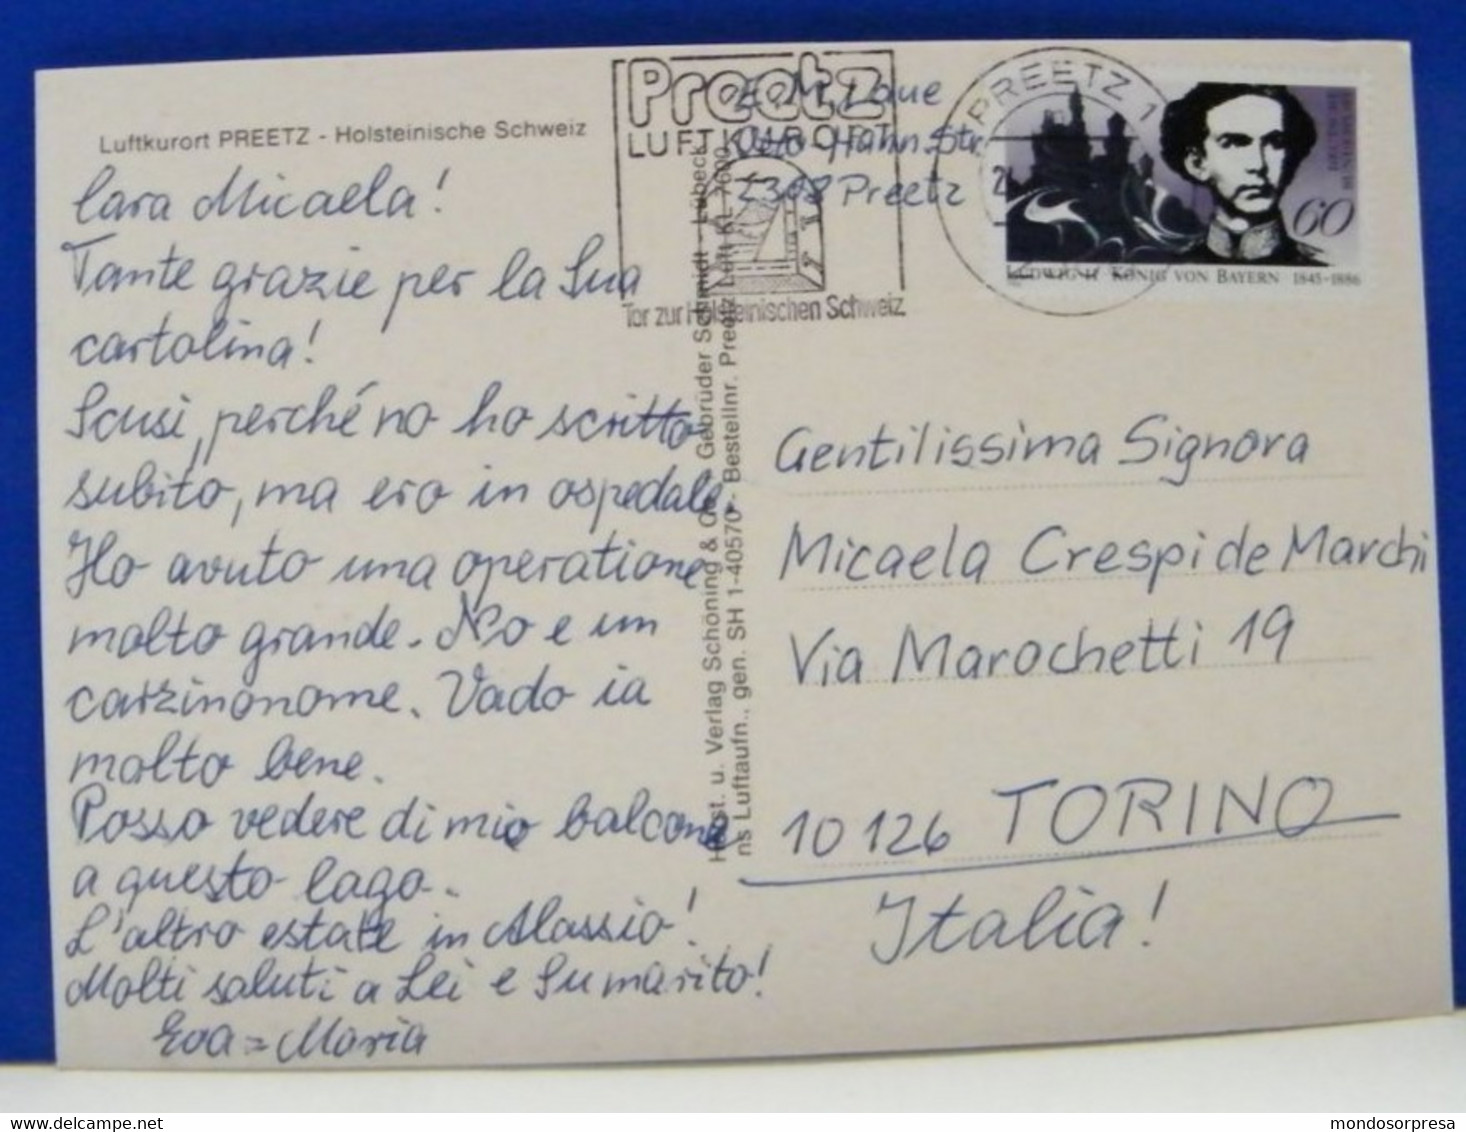 Luftkurort PREETZ - Holsteinische Schweiz
Cara Micaela!
Tante grazie per la Sua
cartolina!
Scusi, perché no ho scritto
subito, ma ero in ospedale.
Ho avuto una operatione
molto grande. No e un
carzinonome. Vado ia
molto bene.
Posso vedere di mio balcone
a questo lago.
L'altro estate in Alassio!
Molti saluti a Lei e Su marito!
Eva=Maria
Preetz
LUFTKURORT
Tor zur Holsteinischen Schweiz
E. M. Laue
Otto-Hahn-Str.
2308 Preetz
PREETZ 1
60
LUDWIG II. KÖNIG VON BAYERN 1845-1886
Herst. u. Verlag Schöning & Co + Gebrüder Schmidt - Lübeck
ns Luftaufn., gen. SH 1-40570 - Bestellnr. Preetz Luft KL 7600
Gentilissima Signora
Micaela Crespi de Marchi
Via Marochetti 19
10126 TORINO
Italia!
mondosorpresa